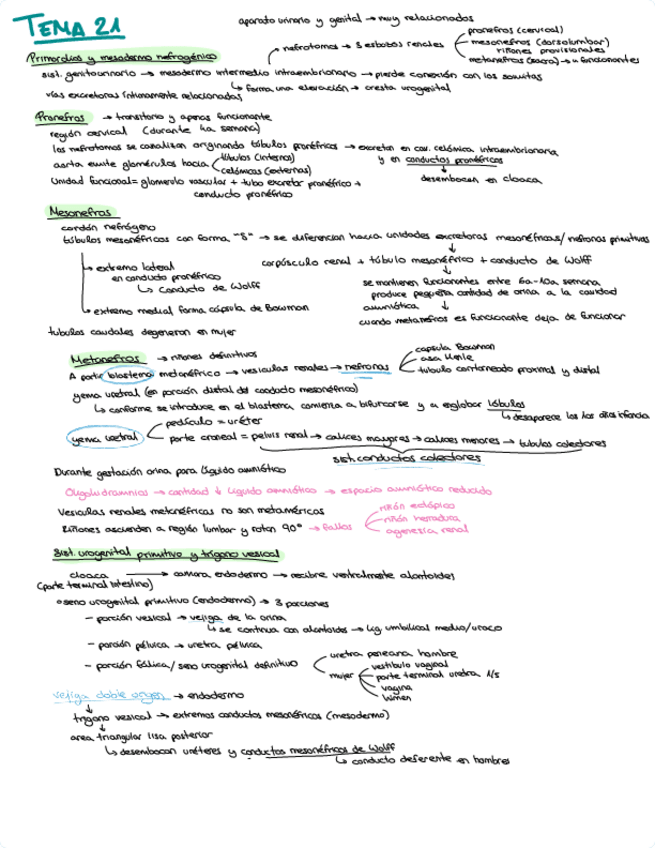 TEMA 21
aparato urinario y genital → muy relacionados
Primordios y mesodermo nefrogénico
nefrotomos → 3 esbozos renales
pronefros (cervical)
mesonefros (dorsolumbar)
riñones provisionales
metanefros (sacro) → u funcionantes
sist. genitourinario → mesodermo intermedio intraembrionario → pierde conexión con los somitas
↳ forma una elevación → cresta urogenital
vías excretoras íntimamente relacionadas
Pronefros → transitorio y apenas funcionante
región cervical (durante 4a semana)
los nefrotomos se canalizan originando túbulos pronéfricos → excretan en cav. celómica intraembrionaria
y en conductos pronéfricos
desembocan en cloaca
aorta emite glomérulos hacia
túbulos (internos)
celómicas (externas)
Unidad funcional = glomerulo vascular + tubo excretor pronéfrico +
conducto pronéfrico
Mesonefros
cordón nefrógeno
túbulos mesonéfricos con forma "S" → se diferencian hacia unidades excretoras mesonéfricas/nefronas primitivas
corpúsculo renal + túbulo mesonéfrico + conducto de Wolff
↳ extremo lateral
en conducto pronéfrico
↳ conducto de Wolff
↳ extremo medial forma cápsula de Bowman
se mantienen funcionantes entre 6a-10a semana
produce pequeña cantidad de orina a la cavidad
amniótica ↓
cuando metanefros es funcionante deja de funcionar
tubulos caudales degeneran en mujer
Metanefros → riñones definitivos
A partir blastema metanéfrico → vesiculas renales → nefronas
capsula Bowman
asa Henle
tubulo contorneado proximal y distal
yema uretral (en porción distal del conducto mesonéfrico)
↳ conforme se introduce en el blastema comienza a bifurcarse y a englobar lóbulos
↳ desaparece los infancia
yema uretral
pedículo = uréter
parte craneal = pelvis renal → calices mayores → calices menores → tubulos colectores
sist. conductos colectores
Durante gestación orina para líquido amniótico
Oligohidramnios → cantidad ↓ líquido amniótico → espacio amniótico reducido
Vesiculas renales metanéfricas no son metaméricas
Riñones ascienden a región lumbar y rotan 90° → fallos
riñón ectópico
riñón herradura
agenesia renal
Sist. urogenital primitivo y trígono vesical
cloaca → camara endodermo → recibe ventralmente alantoides
(parte terminal intestino)
seno urogenital primitivo (endodermo) → 3 porciones
- porción vesical → vejiga de la orina
↳ se continua con alantoides → lig umbilical medio/uraco
- porción pélvica → uretra pélvica
- porción fálica/seno urogenital definitivo
uretra peneana hombre
mujer
vestibulo vaginal
parte terminal uretra 1/5
vagina
himen
vejiga doble origen → endodermo
↓
trígono vesical → extremos conductos mesonéfricos (mesodermo)
↓
area triangular lisa posterior
↳ desembocan uréteres y conductos mesonéfricos de Wolff
↳ conducto deferente en hombres